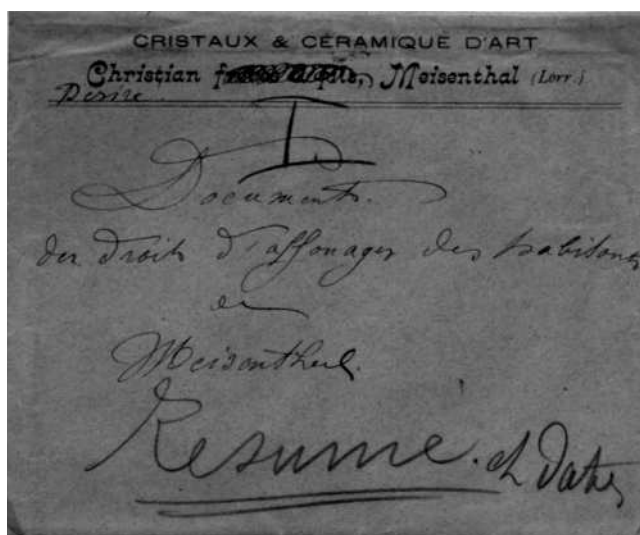 CRISTAUX & CÉRAMIQUE D'ART
Christian Meisenthal (Lorr.)
Désiré
I
Documents
des droits d'affouages des habitans
de
Meisenthal
Résumé. et Dates